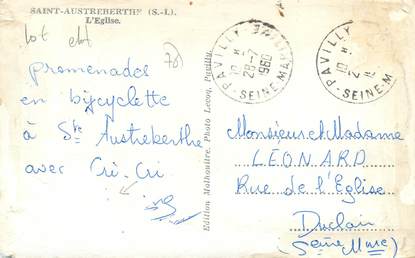 SAINT-AUSTREBERTHE (S.-I.).
L'Eglise.
promenades
en bicyclette
à Ste Austreberthe
avec Cri-Cri
Edition Malhouitre, Photo Lecoq, Pavilly.
PAVILLY
28-7
1960
SEINE-MAR
PAVILLY
SEINE-M
Monsieur et Madame
LÉONARD
Rue de l'Eglise
Duclair
(Seine Mme)